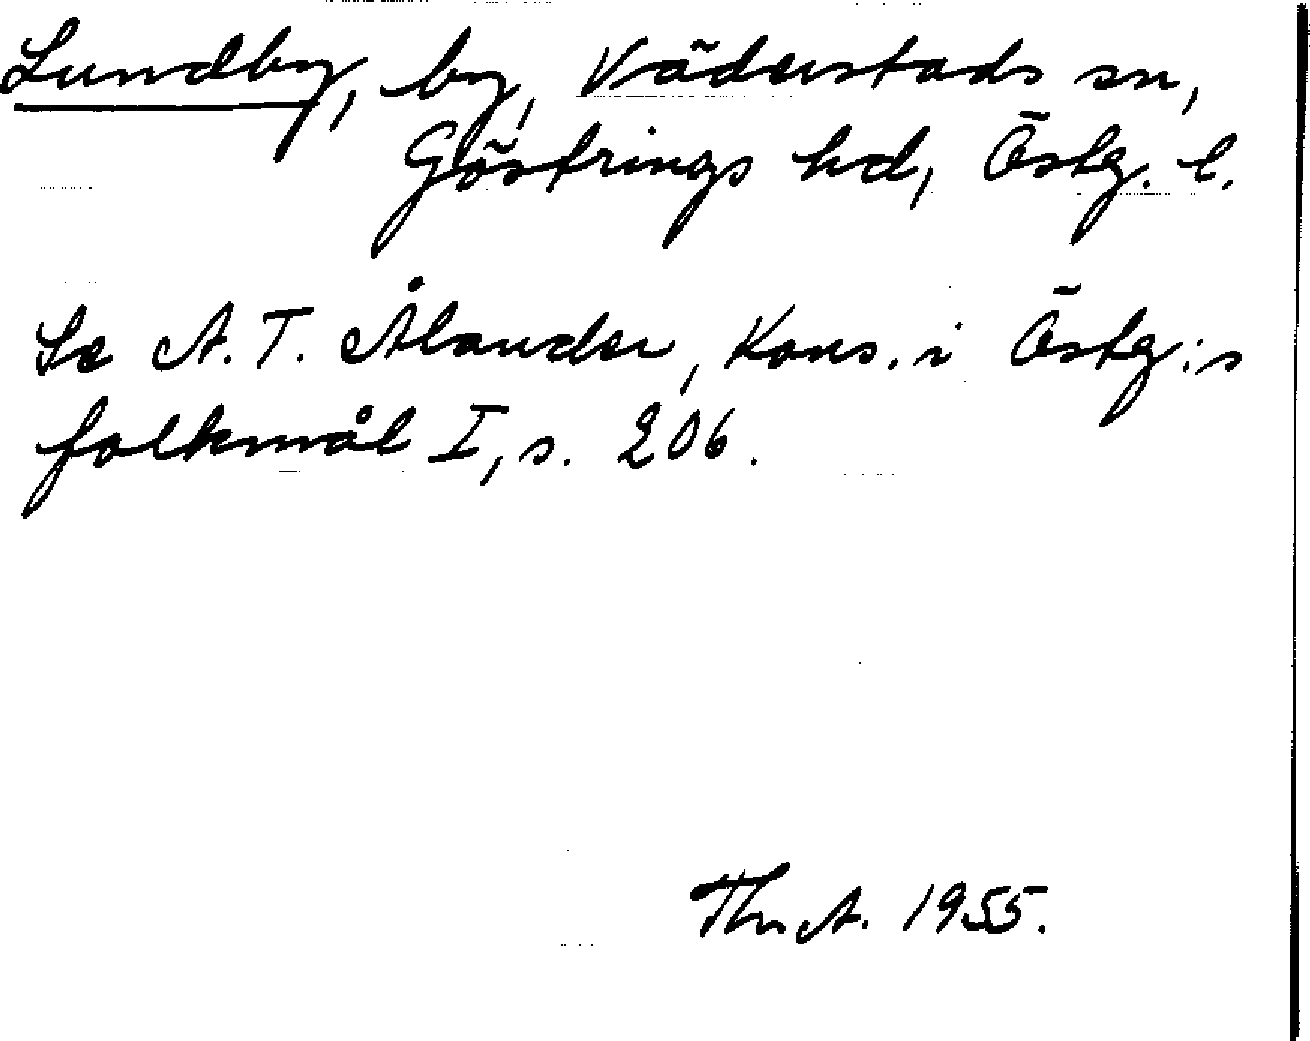 Lundby, by, Väderstads sn,
Göstrings hd, Östg. l.
Se A. T. Ålander, Kons. i Östg:s
folkmål I, s. 206.
Th. A. 1955.